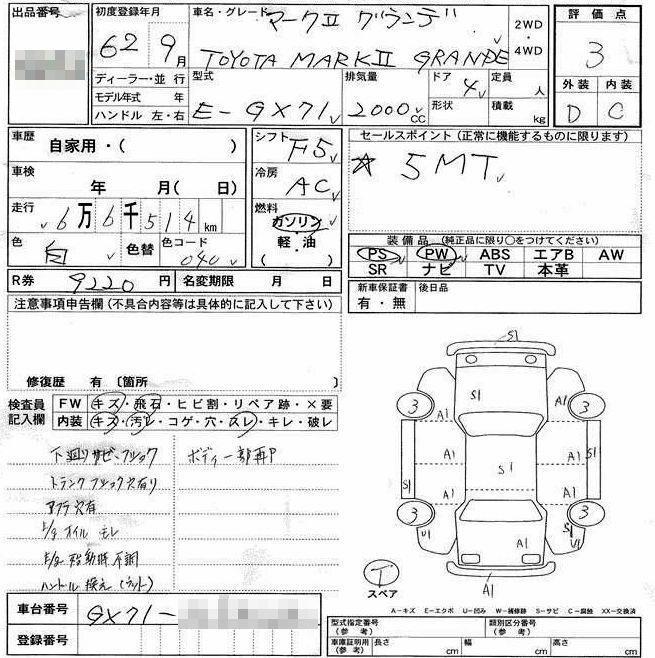 出品番号
初度登録年月
62 9月
車名・グレード マークⅡ グランデ
TOYOTA MARKⅡ GRANDE
2WD
・
4WD
評価点
3
外装 内装
D C
ディーラー・並行
モデル年式 年
ハンドル 左・右
型式
E-GX71
排気量
2000cc
ドア 4
形状
定員 人
積載 kg
車歴
自家用・( )
車検
年 月( 日)
走行
6万6千514km
色 白
色替
色コード 040
シフト
F5
冷房
AC
燃料
ガソリン
・
軽・油
( )
セールスポイント (正常に機能するものに限ります)
☆ 5MT
装備品 (純正品に限り○をつけてください)
PS PW ABS エアB AW
SR ナビ TV 本革
R券 9220円
名変期限 月 日
新車保証書
有・無
後日品
注意事項申告欄 (不具合内容等は具体的に記入して下さい)
修復歴 有 〔箇所 〕
検査員
記入欄
FW キズ・飛石・ヒビ割・リペア跡・×要
内装 キズ・汚レ・コゲ・穴・スレ・キレ・破レ
下廻りサビ・フショク
ボディー部再P
トランクフショク穴有り
アブラ穴有
E/gオイルモレ
E/g始動時不調
ハンドル換え(ナット)
S1
S1
3 A1 A1 3
A1 A1
S1 S1 S1
A1 A1
3 3
U1 A1 S1 U1
A1
T
スペア
A-キズ E-エクボ U-凹み W-補修跡 S-サビ C-腐蝕 XX-交換済
車台番号 GX71-
登録番号
型式指定番号
(参考)
類別区分番号
(参考)
車庫証明用
(参考)
長さ cm
幅 cm
高さ cm